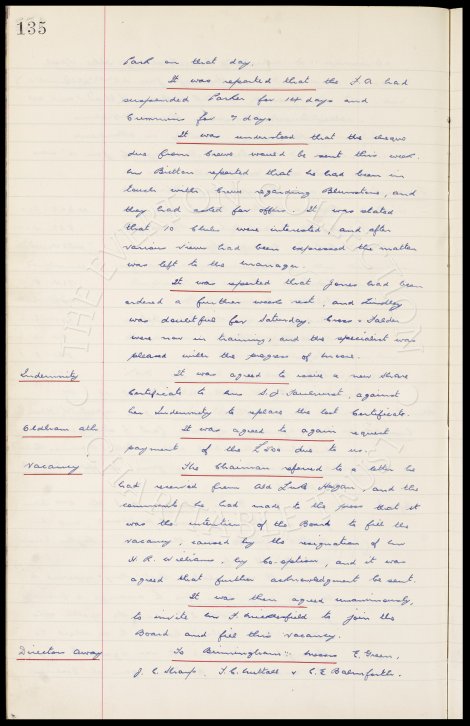 135
Park on that day.
It was reported that the F.A. had
suspended Parker for 14 days and
Cummins for 7 days
It was understood that the cheque
due from Crewe would be sent this week.
Mr Britton reported that he had been in
touch with Crewe regarding Blunstone, and
they had asked for offers. It was stated
that 10 Clubs were interested, and after
various views had been expressed the matter
was left to the manager.
It was reported that Jones had been
ordered a further weeks rest, and Lindley
was doubtful for Saturday. Cross + Falder
were now in training, and the specialist was
pleased with the progress of
Indemnity
It was agreed to issue a new Share
Certificate to Mrs S. J. against
her Indemnity to replace the lost Certificate.
Oldham Ath.
It was agreed to again request
payment of the £500 due to us.
Vacancy
The Chairman referred to a letter he
had received from Ald Luke Hogan, and the
comments he had made to the press that it
was the intention of the Board to fill the
vacancy, caused by the resignation of Mr
H. R. Williams, by Co-option, and it was
agreed that further acknowledgment be sent.
It was then agreed unanimously,
to invite Mr F. Micklesfield to join the
Board and fill this vacancy.
Directors Away
To Birmingham: Messrs E. Green,
J. C. Sharp, T. C. Nuttall & C. E. Balmforth.
THE EVERTON COLLECTION
CHARITABLE TRUST